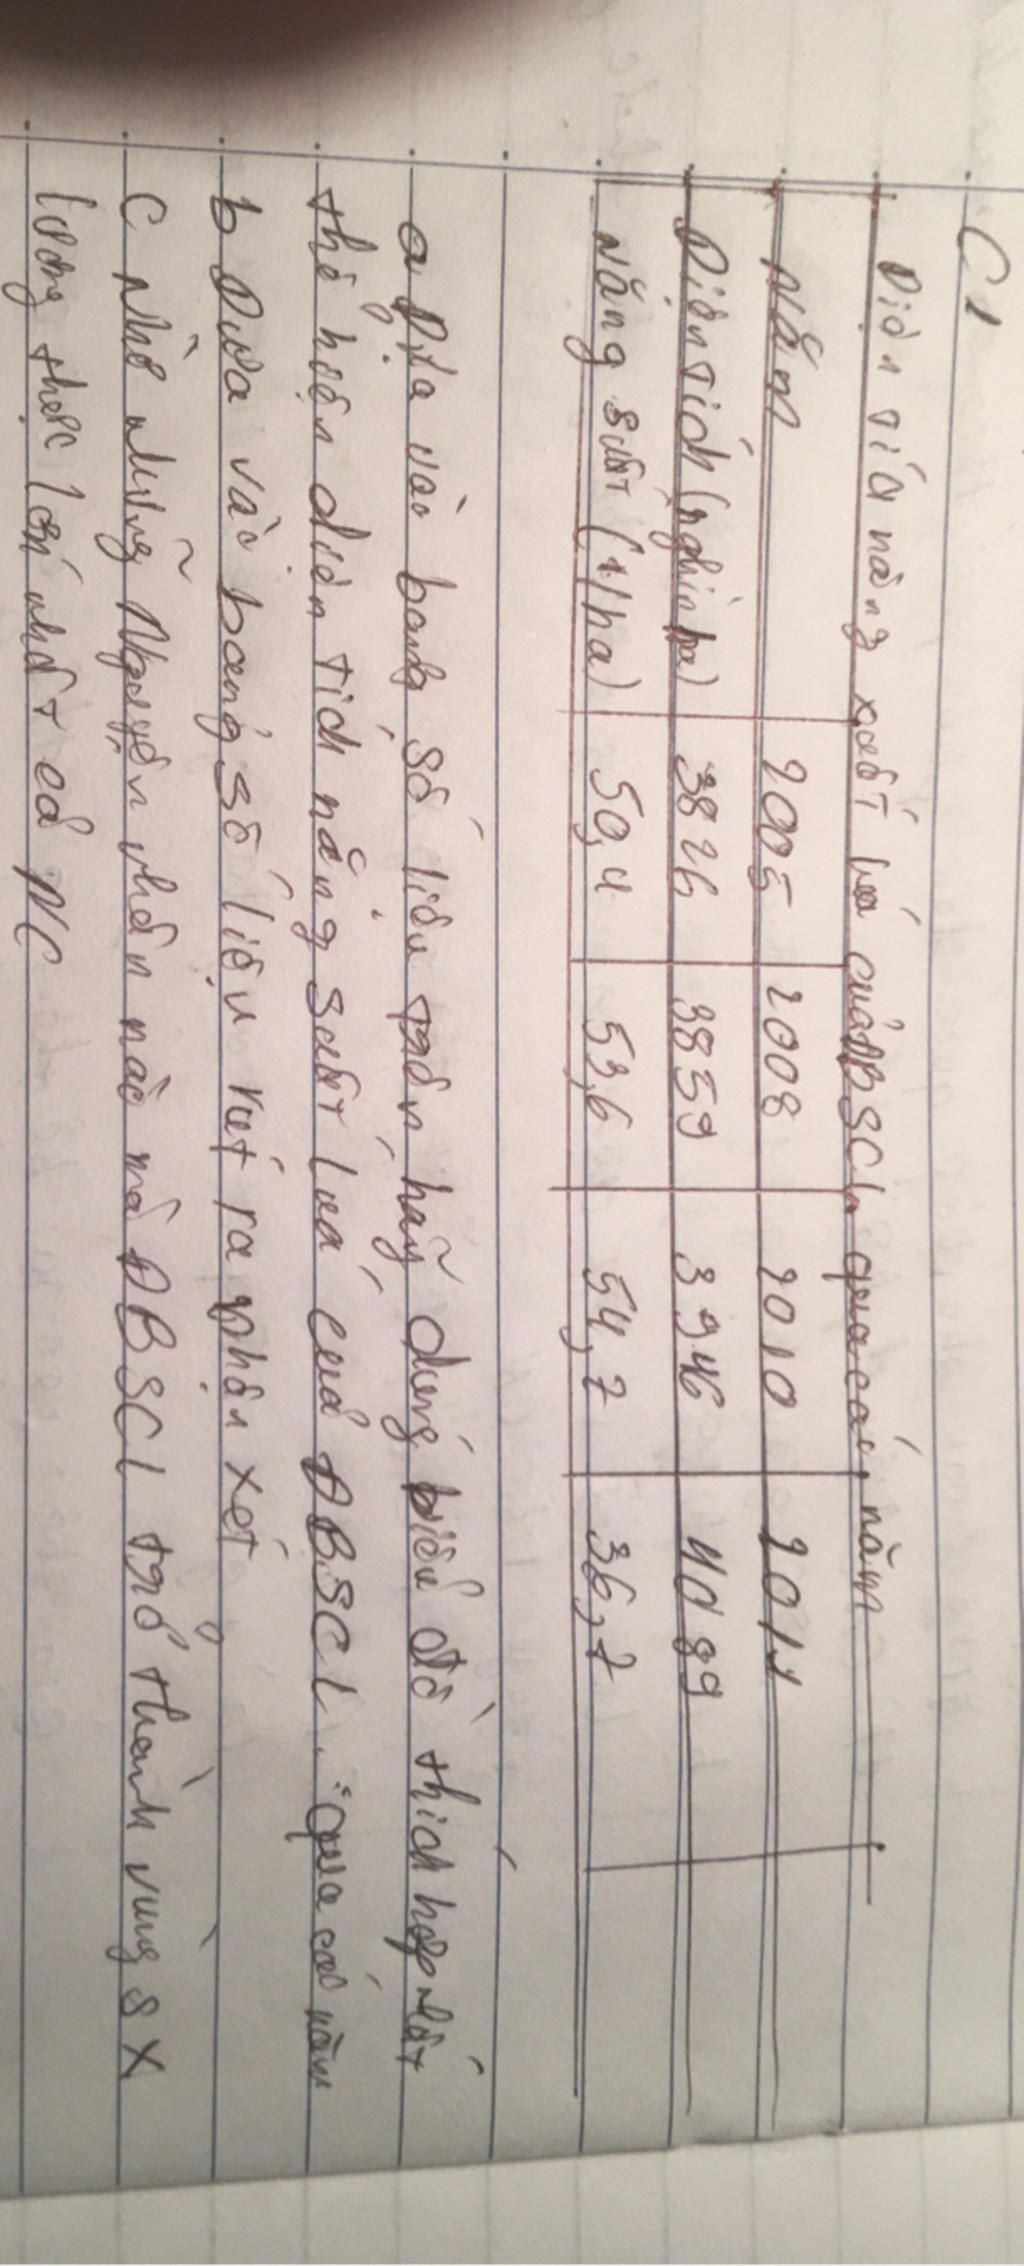 C1
Diện tích năng xuất lúa của ĐBSCL qua các năm
Năm 2005 2008 2010 2011
Diện tích (nghìn ha) 3826 3859 3946 4089
Năng suất (tạ/ha) 50,4 53,6 54,7 36,7
a Dựa vào bảng số liệu trên hãy dựng biểu đồ thích hợp nhất
thể hiện diện tích năng suất lúa của ĐBSCL. Qua các năm
b Dựa vào bảng số liệu rút ra nhận xét
C Nhờ những Nguyên nhân nào mà ĐBSCL trở thành vùng SX
lương thực lớn nhất cả NC